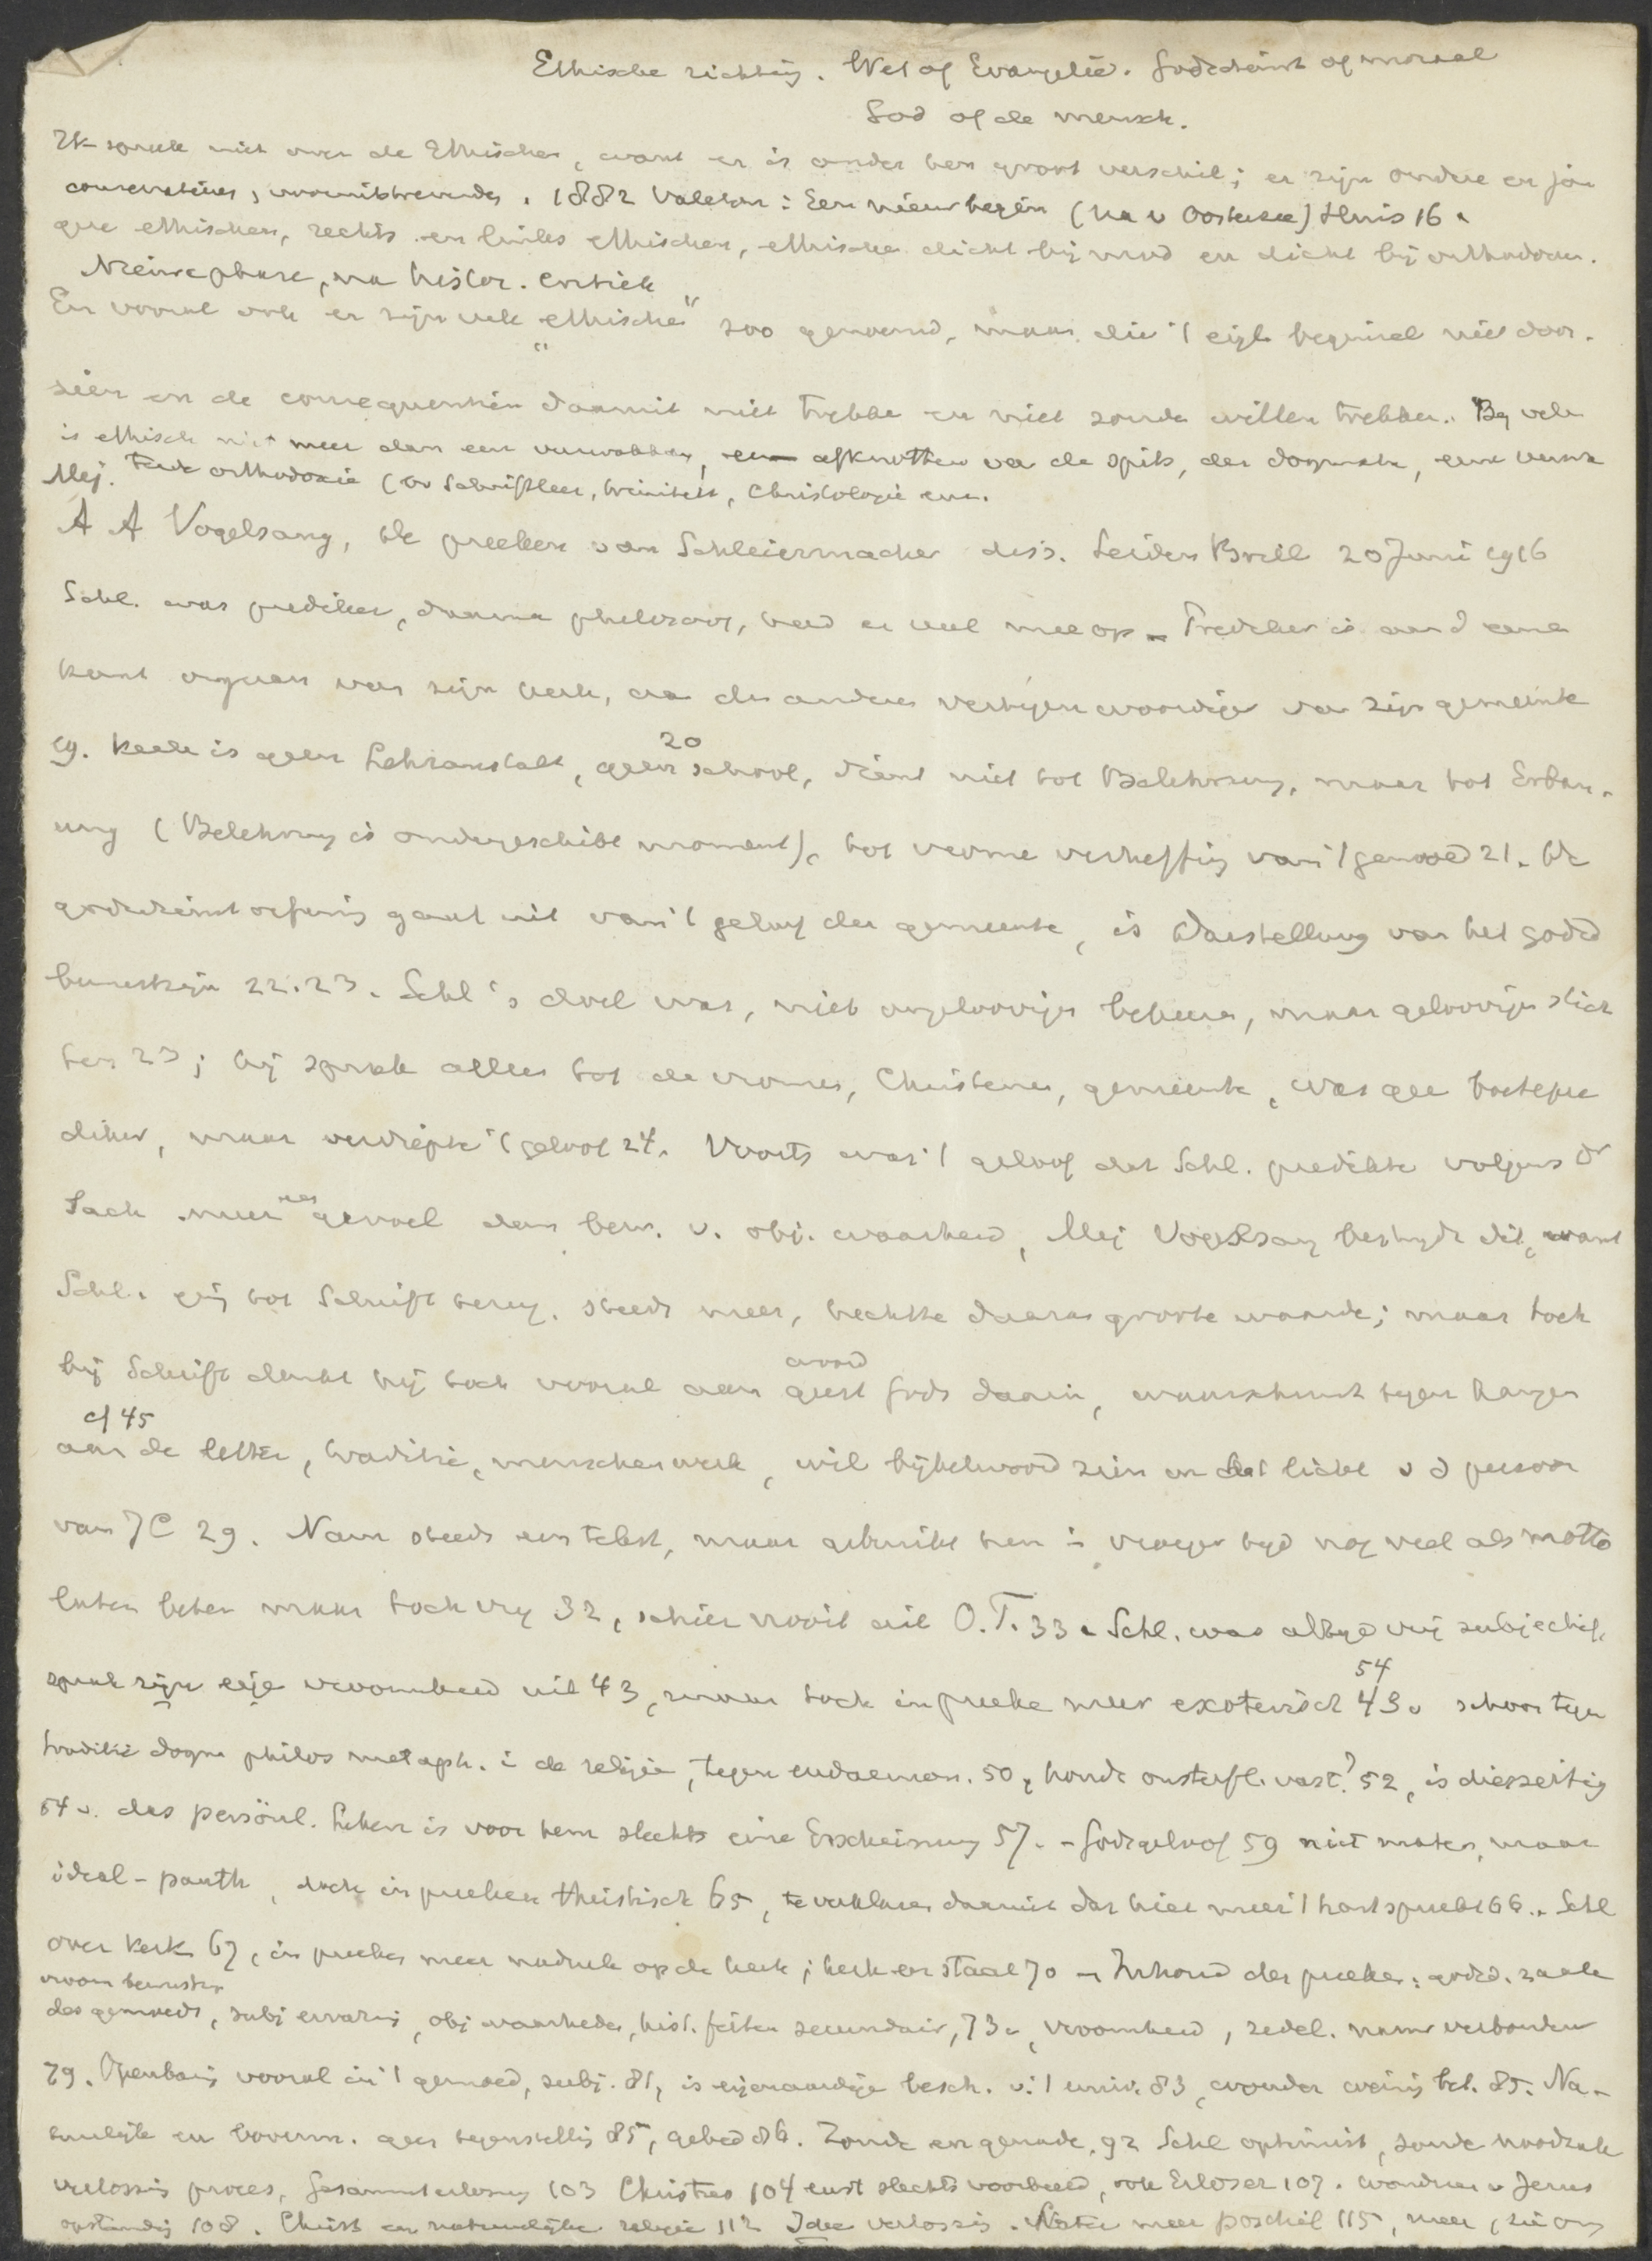 Ethische richting. Wet of Evangelie. Godsdienst of moraal
God of de mensch.
Ik spreek niet over de Ethischen, want er is onder hen groot verschil; er zijn oudere en jon
conservatieve, vooruitstrevende. 1882 Valeton: Een nieuw begin (na v Oosterzee) Huis 16.
gere ethischen, rechts en links ethischen, ethische dicht bij mod en dicht bij orthodoxen.
Nieuwe phase, na histor. critiek
En vooral ook er zijn vele "ethische" zoo genoemd, maar die 't eigl. beginsel niet door-
zien en de consequentiën daaruit niet trekken en niet zouden willen trekken. Bij velen
is ethisch niet meer dan een verwakking, een afknotten van de spits, der dogmata, eene verzw
orthodoxie (bv Schriftleer, triniteit, Christologie enz.
Mej. A A Vogelsang, De preeken van Schleiermacher diss. Leiden Brill 20 Juni 1916
Schl. was prediker, daarna philosoof, had er veel mee op. Prediker is aan d eene
kant orgaan van zijn kerk, aan de andere vertegenwoordiger van zijn gemeente
19. Kerk is geen Lehranstalt, geen school, 20 dient niet tot Belehrung, maar tot Erbau-
ung (Belehrung is ondergeschikt moment), tot vrome verheffing van 't gemoed 21. De
godsdienstoefening gaat uit van 't geloof der gemeente, is Darstellung van het godsd
bewustzijn 22.23. Schl's doel was, niet ongeloovigen bekeeren, maar geloovigen stich
ten 23; hij sprak alleen tot de vromen, Christenen, gemeente, was geen boetepre
diker, maar verdiepte 't geloof 24. Voorts was 't geloof dat Schl. predikte volgens Dr
Sack meer gevoel dan bew. v. obj. waarheid, Mej Vogelsang bestrijdt dit, want
Schl. ging tot Schrift terug. steeds meer, hechtte daaraan groote waarde; maar toch
bij Schrift denkt hij toch vooral aan geest woord Gods daarin, waarschuwt tegen hangen
cf 45
aan de letter, traditie, menschenwerk, wil bijbelwoord zien in het licht v d persoon
van JC 29. Nam steeds een tekst, maar gebruikt hen in vroeger tijd nog veel als motto
later beter maar toch vrij 32, schier nooit uit O.T. 33. Schl. was altijd vrij subjectief,
sprak zijn eige vroomheid uit 43, maar toch in preeken meer exoterisch 43. 54 schoon tegen
traditie dogma philos metaph. in de religie, tegen eudaemon. 50, houdt onsterfl. vast? 52, is diesseitig
54 v. das persönl. Leben is voor hem slechts eine Erscheinung 57. - Godsgeloof 59 niet mater, maar
ideal-panth, doch in preeken theïstisch 65, te verklaren daaruit dat hier meer 't hart spreekt 66. Schl
over kerk 67, in preeken meer nadruk op de kerk; kerk en staat 70 - Inhoud der preeken: godsd. zaak
vroom bewustzn
des gemoeds, subj ervaring, obj waarheden, hist. feiten secundair, 73, vroomheid, zedel. nauw verbonden
79. Openbaring vooral in 't gemoed, subj. 81, is eigenaardige besch. v. 't univ. 83, wonder weinig bet. 85. Na-
tuurlijk en bovenn. geen tegenstelling 85, gebed 86. Zonde en genade, 92 Schl optimist, zonde noodzak
verlossing proces, Gesammterlösung 103 Christus 104 eerst slechts voorbeeld, ook Erlöser 107. wonderen v Jezus
opstanding 108. Christ en natuurlijke religie 112 Idee verlossing. Later meer positief 115, meer